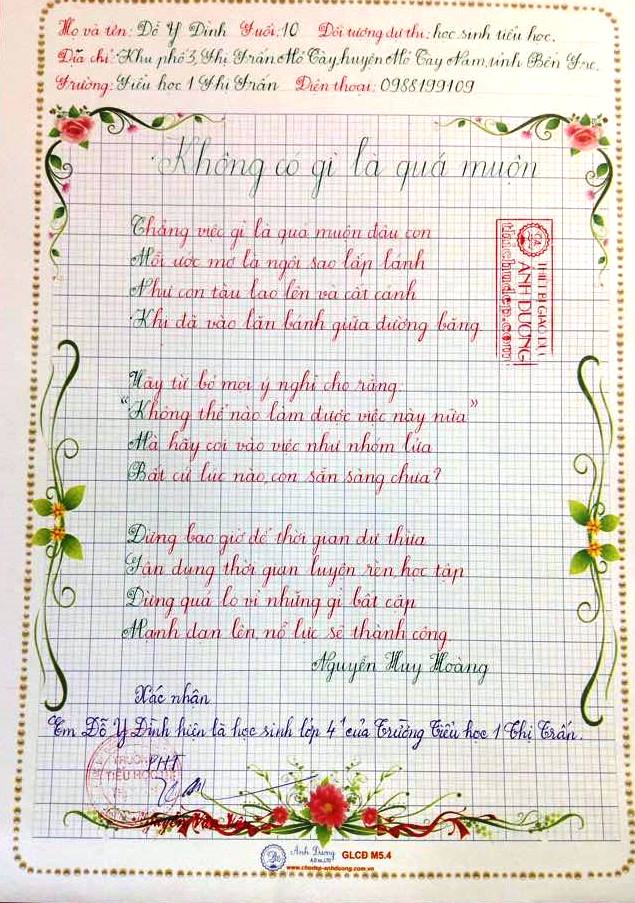 Họ và tên: Đỗ Ý Đình Tuổi: 10 Đối tượng dự thi: học sinh tiểu học.
Địa chỉ: Khu phố 3, Thị Trấn Mỏ Cày, huyện Mỏ Cày Nam, tỉnh Bến Tre.
Trường: Tiểu học 1 Thị Trấn Điện thoại: 0988199109
Không có gì là quá muộn
Chẳng việc gì là quá muộn đâu con
Mỗi ước mơ là ngôi sao lấp lánh
Như con tàu lao lên và cất cánh
Khi đã vào lăn bánh giữa đường băng
Hãy từ bỏ mọi ý nghĩ cho rằng
“Không thể nào làm được việc này nữa”
Mà hãy coi vào việc như nhóm lửa
Bất cứ lúc nào, con sẵn sàng chưa?
Đừng bao giờ để thời gian dư thừa
Tận dụng thời gian luyện rèn học tập
Đừng quá lo vì những gì bất cập
Mạnh dạn lên, nỗ lực sẽ thành công.
Nguyễn Huy Hoàng
THIẾT BỊ GIÁO DỤC
ÁNH DƯƠNG
Xác nhận
Em Đỗ Ý Đình hiện là học sinh lớp 4¹ của Trường Tiểu học 1 Thị Trấn.
PHT
TRƯỜNG
TIỂU HỌC
Ánh Dương
GLCĐ M5.4